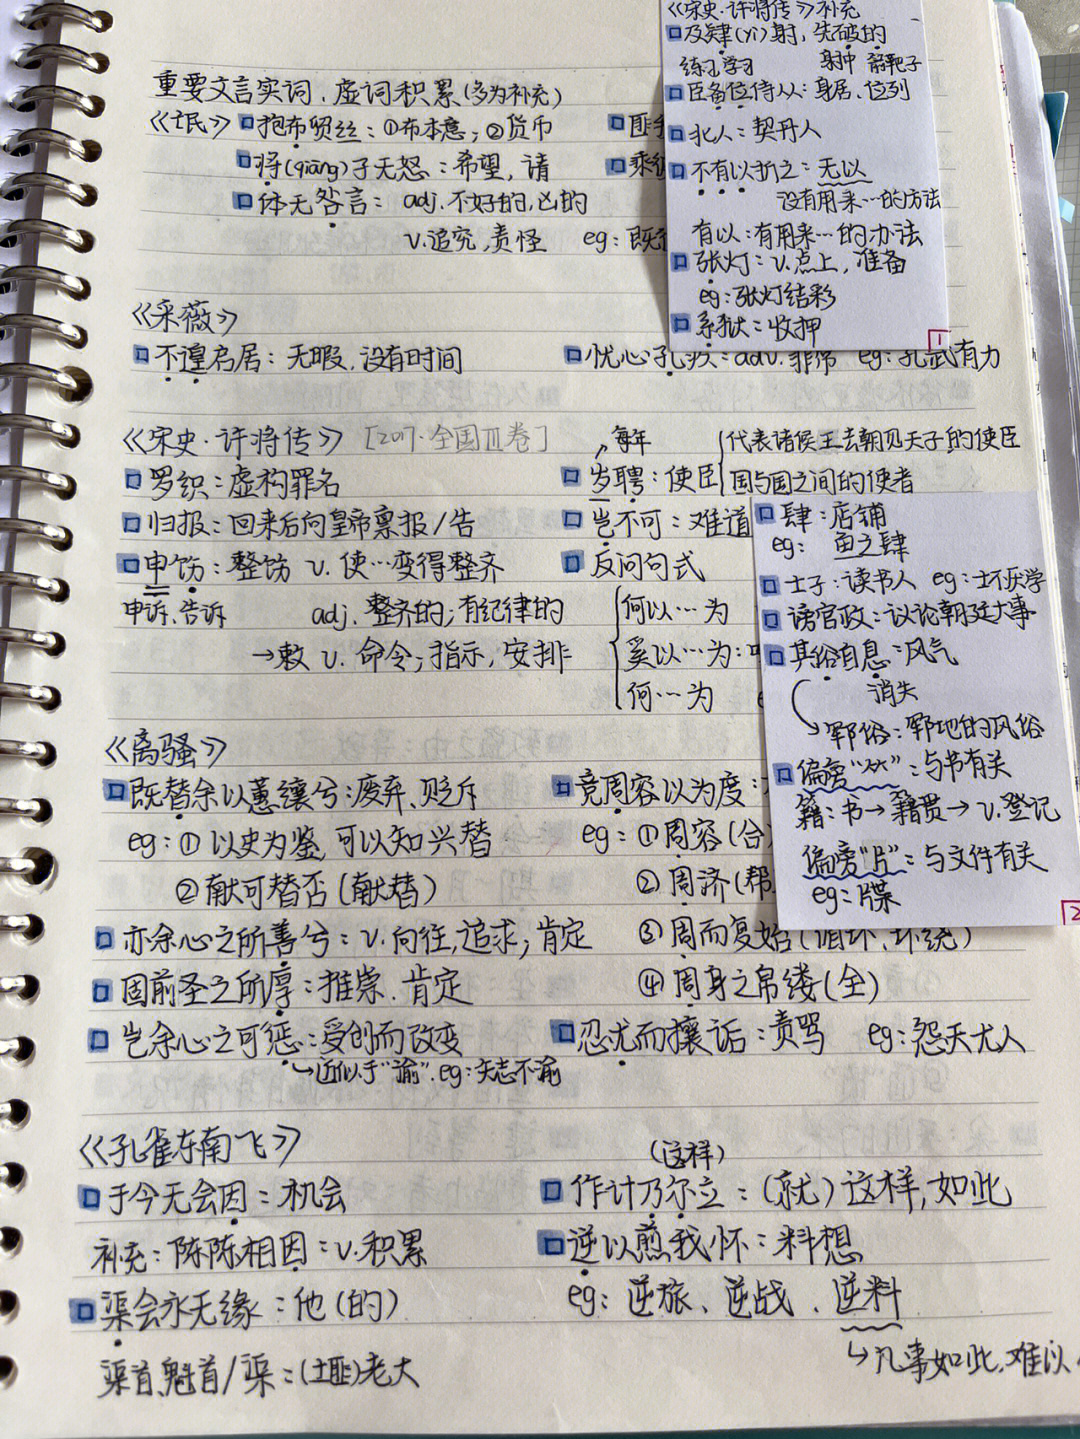 重要文言实词、虚词积累(多为补充)
《氓》 抱布贸丝：①布本意；②货币
将(qiāng)子无怒：希望，请
体无咎言： adj.不好的，凶的
v.追究，责怪 eg：既
匪
乘
《采薇》
不遑启居：无暇，没有时间
忧心孔疚：adv.非常 eg：孔武有力
《宋史·许将传》[2017·全国Ⅲ卷]
罗织：虚构罪名
归报：回来后向皇帝禀报/告
申饬：整饬 v.使…变得整齐
申诉、告诉
adj.整齐的；有纪律的
→敕 v.命令；指示，安排
每年
岁聘：使臣
代表诸侯王去朝见天子的使臣
国与国之间的使者
岂不可：难道
反问句式
何以…为
奚以…为：
何…为
《离骚》
既替余以蕙纕兮：废弃、贬斥
eg：①以史为鉴，可以知兴替
②献可替否(献替)
亦余心之所善兮：v.向往，追求；肯定
固前圣之所厚：推崇、肯定
岂余心之可惩：受创而改变
↳近似于“渝”.eg：矢志不渝
竞周容以为度：
eg：①周容(合
②周济(帮
③周而复始(循环、环绕)
④周身之帛缕(全)
忍尤而攘诟：责骂 eg：怨天尤人
《孔雀东南飞》
于今无会因：机会
补充：陈陈相因：v.积累
渠会永无缘：他(的)
渠首、魁首/渠：(土匪)老大
(这样)
作计乃尔立：(就)这样，如此
逆以煎我怀：料想
eg：逆旅、逆战、逆料
↳凡事如此，难以
《宋史·许将传》补充
及肄(yì)射，先破的
练习 学习 射中 箭靶子
臣备位侍从：身居、位列
北人：契丹人
不有以折之：无以
没有用来…的方法
有以：有用来…的办法
张灯：v.点上，准备
eg：张灯结彩
系狱：收押
1
肆：店铺
eg： 鱼之肆
士子：读书人 eg：士不厌学
谤官政：议论朝廷大事
其俗自息：风气
消失
↳郓俗：郓地的风俗
偏旁“⺮”：与书有关
籍：书→籍贯→v.登记
偏旁“片”：与文件有关
eg：牒
2